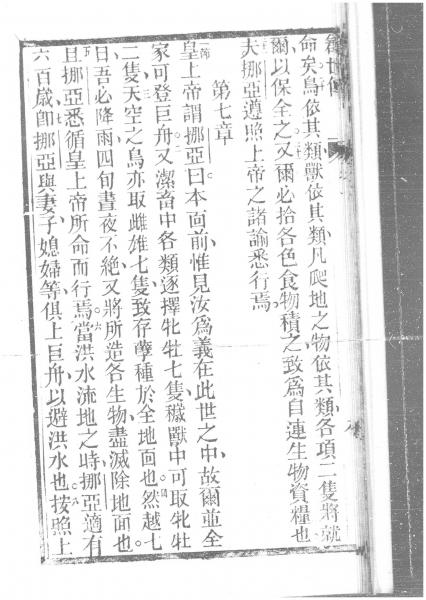 命矣鳥依其類獸依其類凡爬地之物依其類各項二隻將就
爾以保全之又爾必拾各色食物積之致為自連生物資糧也
夫挪亞遵照上帝之諸諭悉行焉
第七章
皇上帝謂挪亞曰本面前惟見汝為義在此世之中故爾並全
家可登巨舟又潔畜中各類逐擇牝牡七隻穢獸中可取牝牡
二隻天空之鳥亦取雌雄七隻致存孽種於全地面也然越七
日吾必降雨四旬晝夜不絕又將所造各生物盡滅除地面也
且挪亞悉循皇上帝所命而行焉當洪水流地之時挪亞適有
六百歲卽挪亞與妻子媳婦等俱上巨舟以避洪水也按照上